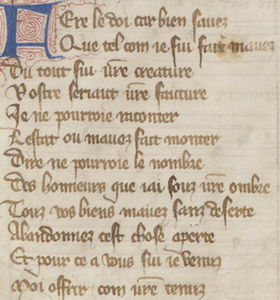 Fere le doi car bien sauez
Que tel com ie sui fait mauez
Du tout sui vr̃e creature
Vostre seruant vr̃e faiture
Je ne pourroie raconter
Lestat ou mauez fait monter
Dire ne pourroie le nombre
Des honneurs que iai souz vr̃e ombre
Touz vos biens mauez sanz deserte
Abandonnez cest chose aperte
Et pour ce a vous sui ie venuz
Moi offrir com vr̃e tenuz